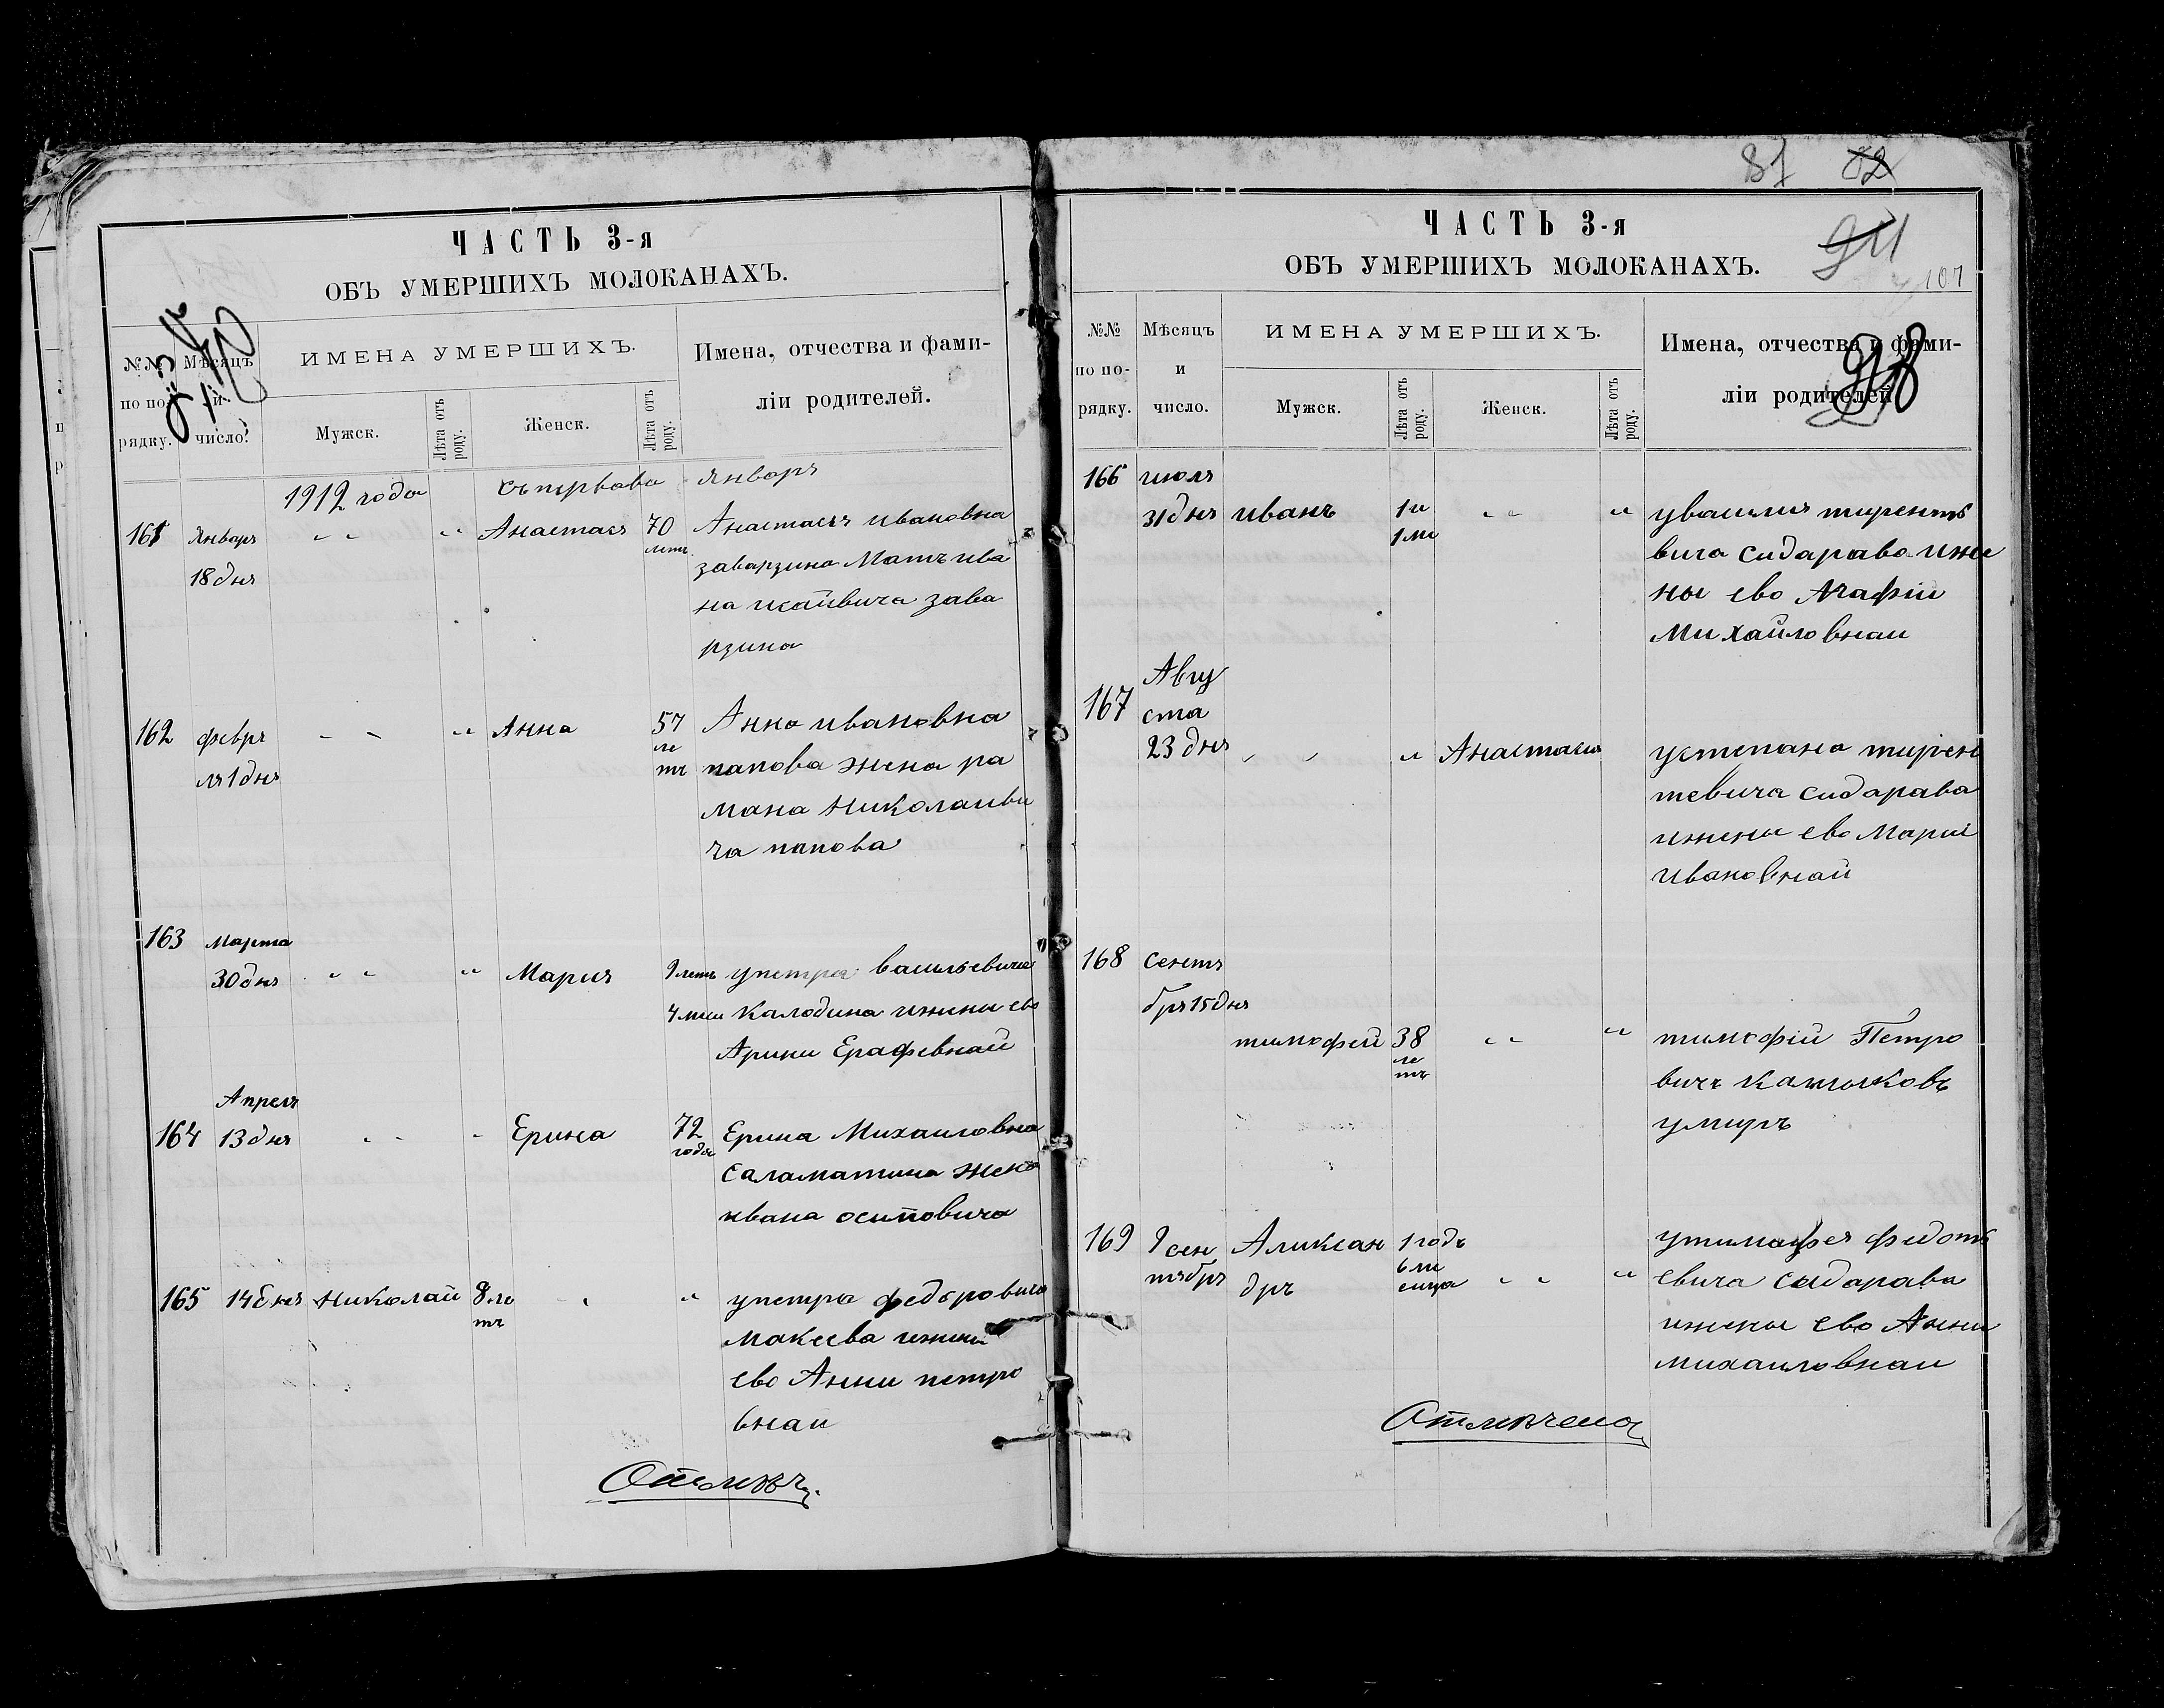 ЧАСТЬ 3-я
ОБЪ УМЕРШИХЪ МОЛОКАНАХЪ.
№№ по порядку.
Мѣсяцъ и число.
ИМЕНА УМЕРШИХЪ.
Мужск.
Лѣта отъ роду.
Женск.
Лѣта отъ роду.
Имена, отчества и фами-
ліи родителей.
1912 года съ первава января
161 Января 18 дня " " " Анастася 70 летъ Анастасія ивановна
заварзина Матъ ива
на
зава
рзина
162 февра ля 1 дня - - " Анна 57 ле тъ Анна ивановна
папова жена ра
мана николаиви
ча папова
163 Марта 30 дня " " " Мария 9 летъ упетра васильевича
4 меся калодина ижени ево
Арини Ерафевнай
164 Апреля 13 дня - - - Ерина 72 года Ерина Михаиловна
саламатина жена
ивана осиповича
165 14 дня николай 8 ле тъ - " упетра федоровича
макеева ижени
ево Анни петро
внаи
Отмѣч.
81 82
94
107
98
ЧАСТЬ 3-я
ОБЪ УМЕРШИХЪ МОЛОКАНАХЪ.
№№ по порядку.
Мѣсяцъ и число.
ИМЕНА УМЕРШИХЪ.
Мужск.
Лѣта отъ роду.
Женск.
Лѣта отъ роду.
Имена, отчества и фами-
ліи родителей
166 июля 31 дня иванъ 1 и 1 ме " " " увасилия тиренте
вича сидарава иже
ны ево Агафіи
Михайловнаи
167 Авгу ста 23 дня - - " Анастасия устепана тирен
тевича сидарава
ижены ево Маріи
ивановнай
168 сентя бря 15 дня тимофей 38 ле тъ " " " тимофій Петро
вичъ
умиръ
169 9 сен тября Аликсан дръ 1 годъ 6 ме сица " " " утимафея федоте
евича сидарава
ижены ево Анни
михаиловнаи
Отмѣчено